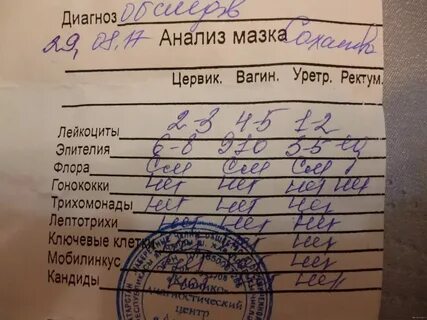 Диагноз обследов
29, 08.17 Анализ мазка
Цервик. Вагин. Уретр. Ректум.
Лейкоциты 2-3 4-5 1-2
Эпителия 6-8 9-10 3-5
Флора См См См
Гонококки Нет Нет Нет Нет
Трихомонады Нет Нет Нет
Лептотрихи Нет Нет Нет
Ключевые клетки Нет Нет
Мобилинкус Нет Нет
Кандиды Нет Нет
диагностический
центр